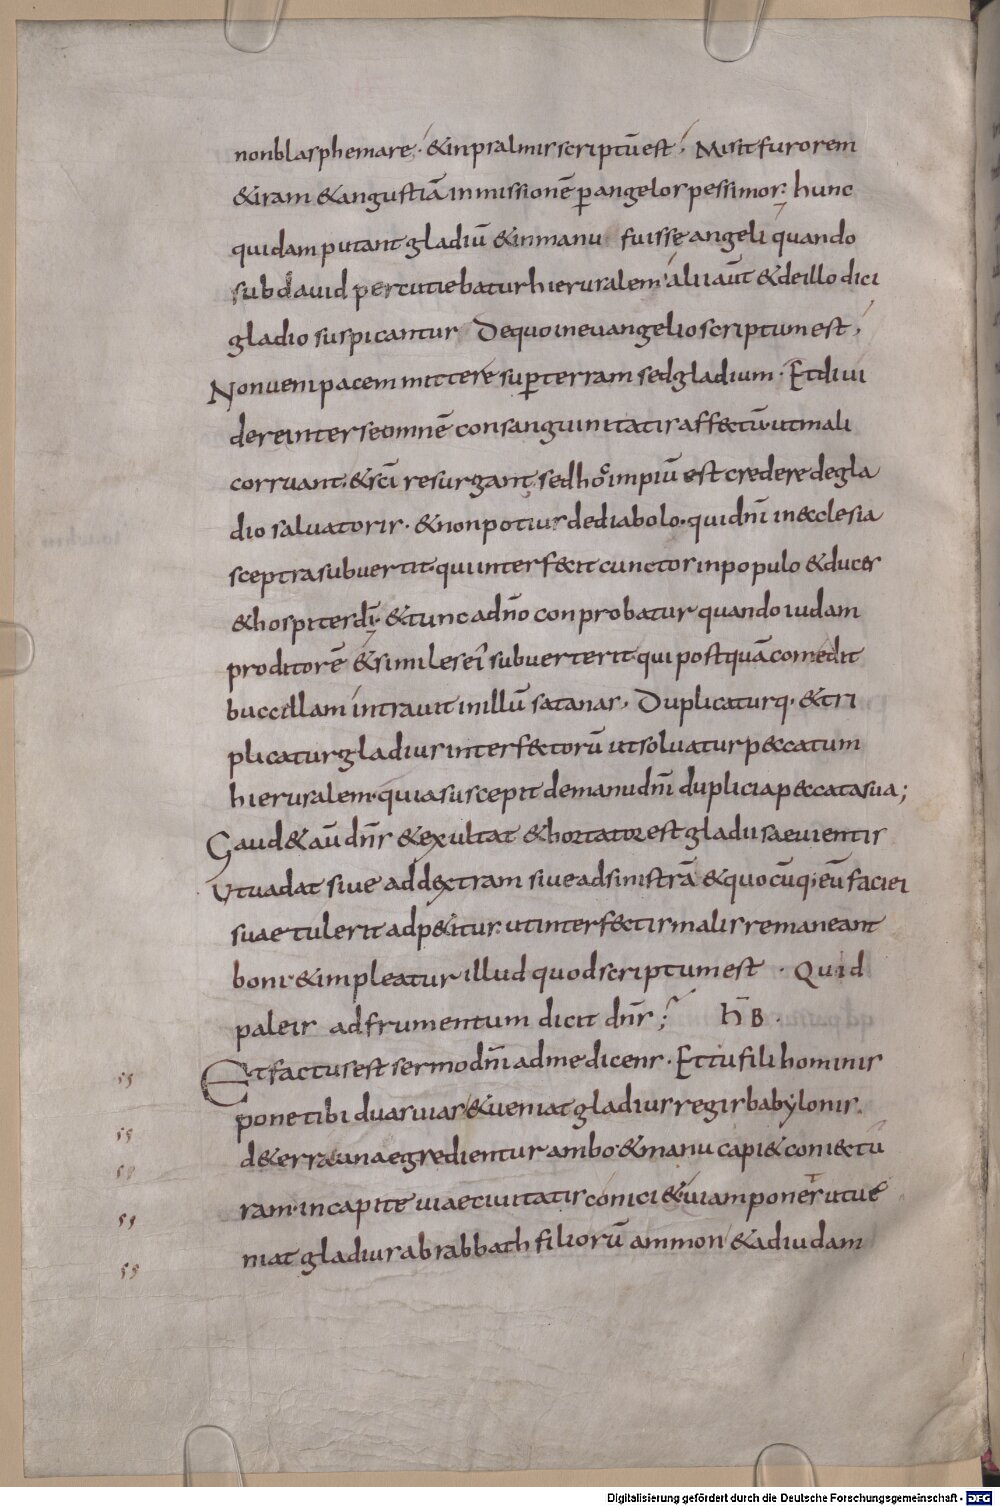 non blasphemare; & in psalmis scriptū est; Misit furorem
& iram & angustiā inmissionē p angelos pessimos; hunc
quidam putant gladiū & in manu fuisse angeli quando
sub dauid percutiebatur hierusalem; alii aūt & de illo dici
gladio suspicantur De quo in euangelio scriptum est;
Non ueni pacem mittere sup terram sed gladium · Et diui
dere inter se omnē consanguinitatis affectū · ut mali
corruant · & sc̄i resurgant · sed hoc impiū est credere de gla
dio saluatoris · & non potius de diabolo · qui dn̄i in ecclesia
sceptra subuertit · qui interfecit cunctos in populo & duces
& hospites dī · & tunc a dn̄o conprobatur quando iudam
proditorē & similes eī subuerterit · qui postquā comedit
buccellam intrauit in illū satanas · Duplicatur q· & tri
plicatur gladius interfectorū ut soluatur peccatum
hierusalem · quia suscepit de manu dn̄i duplicia peccata sua;
Gaud& aū dn̄s & exultat & hortator est gladii saeuientis
Ut uadat siue ad dextram siue ad sinistrā & quocūq; eū faciei
suae tulerit adp&itus · ut interfectis malis remaneant
boni · & impleatur illud quod scriptum est · Quid
paleis ad frumentum dicit dn̄s; h̄ B ·
Et factus est sermo dn̄i ad me dicens · Et tu fili hominis
pone tibi duas uias & ueniat gladius regis babylonis ·
de terra una egredientur ambo · & manu capi& coniectū
ram · in capite uiae ciuitatis conici& · uiam pones ut ue
niat gladius ab rabbath filiorū ammon & ad iudam
55
55
55
55
55
Digitalisierung gefördert durch die Deutsche Forschungsgemeinschaft - DFG